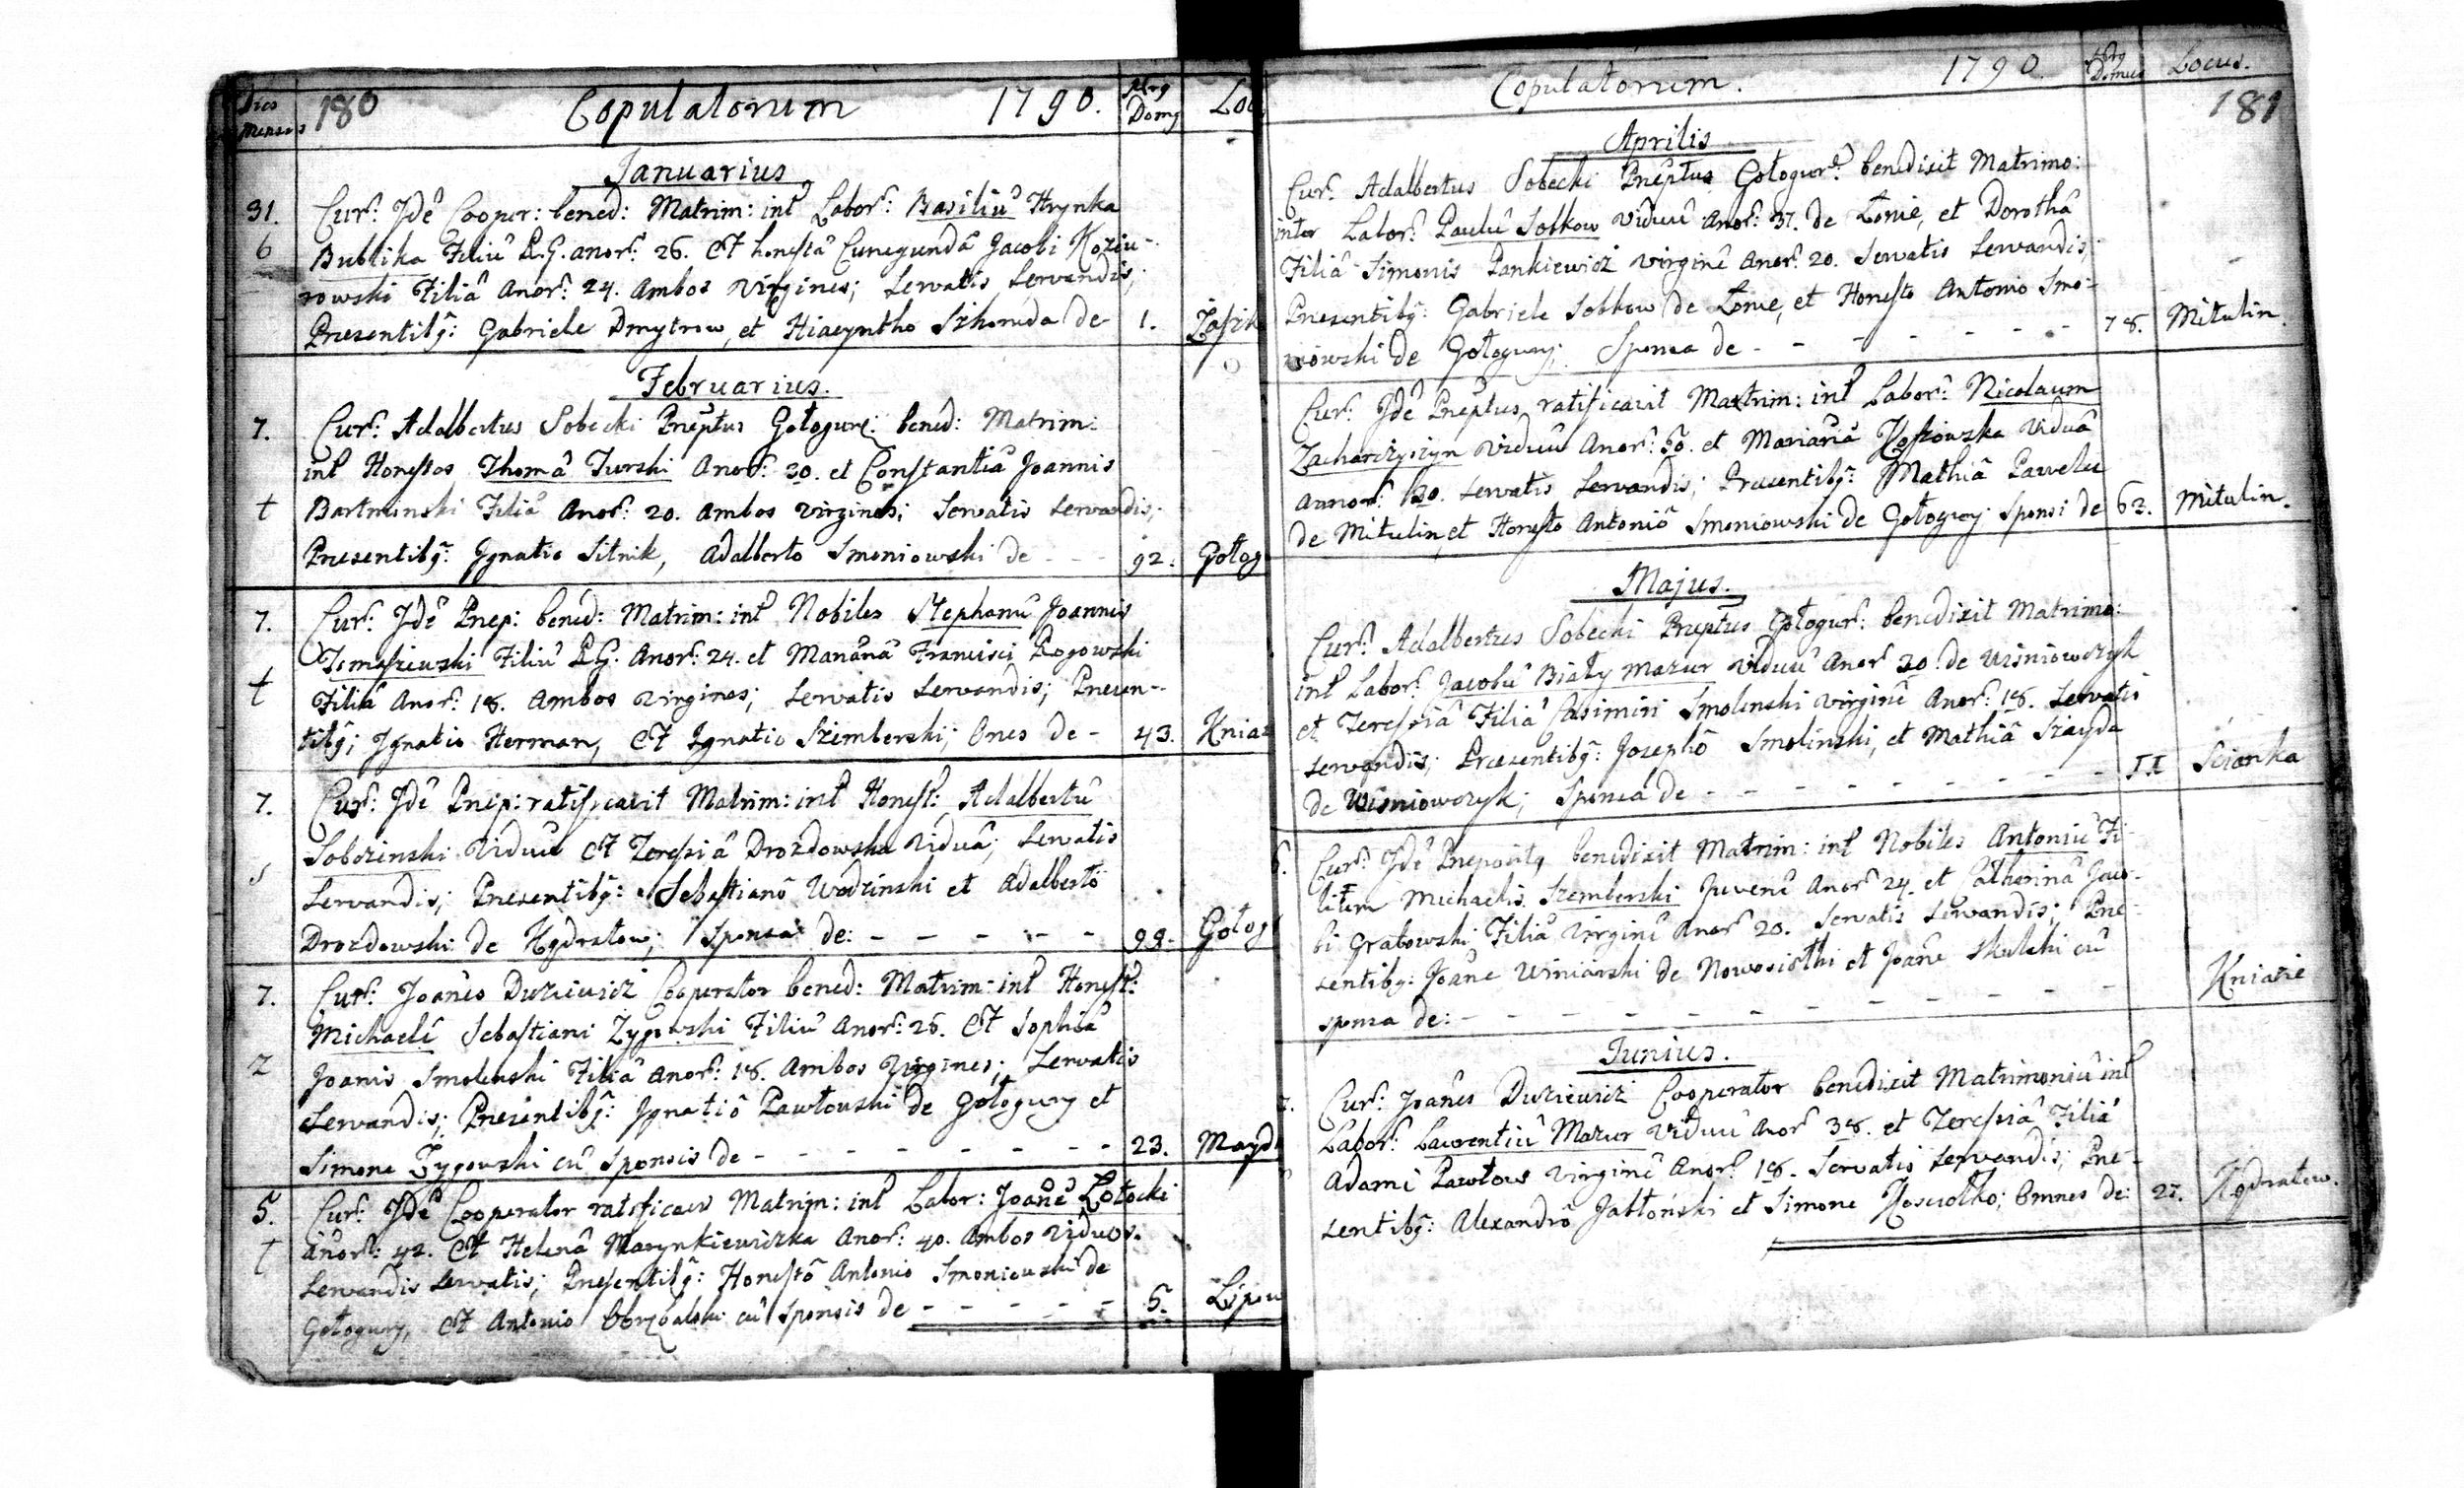 Dies Mensis 180 Copulatorum 1790. Nrg Domg Loc
Januarius
31. Curr: Jdê Cooper: bened: Matrim: int Labor: Basiliû Hrynka
6 Bublika Filiû R.G. anor: 26. Et honestâ Cunegundâ Jacobi Koziu-
rowski Filiâ Anor: 24. Ambos Virgines; Servatis Servandis;
Presentibg: Gabriele Dmytrow, et Hiacyntho Szhomda de 1.
Februarius.
7. Curr: Adalbertus Sobecki Prêptus Gołogurs: bened: Matrim:
int Honestos Thomâ Turski Anor: 30. et Constantiâ Joannis
t Bartminski Filiâ Anor: 20. Ambos virgines; Servatis Servandis;
Presentibg: Jgnatio Sitnik, Adalberto Smoniowski de - - - 92. Gołog
7. Curr: Jdê Prep: bened: Matrim: int Nobiles Stephanû Joannis
Tomaszewski Filiû R.G. Anor: 24. et Marianâ Francisci Rogowski
t Filiâ Anor: 18. Ambos Virgines; Servatis Servandis; Presen-
tibg; Jgnatio Herman, Et Ignatio Szemberski; Ones de - 43. Kniaz
7. Curr: Jdê Prep: ratificavit Matrim: int Honest: Adalbertû
Sobczinski Viduû Et Teressiâ Drozdowska Viduâ; Servatis
s Servandis; Presentibg: Sebastianô Wodzinski et Adalbertô
Drozdowski de Hydratow; Sponsa de: - - - - - 99. Gołog
7. Curr: Joanês Duziewicz Cooperator bened: Matrim: int Honest:
Michaelê Sebastiani Zygowski Filiû Anor: 26. Et Sophiâ
z Joanis Smolenski Filiâ anor: 18. Ambos Virgines; Servatis
Servandis; Presentibg: Jgnatiô Pawłowski de Gołogury et
Simone Zygowski cû Sponsis de - - - - - - - - 23. Mayd
5. Curr: Jdê Cooperator ratificavit Matrim: int Labor: Joanê Łotocki
t anor: 42. Et Helenâ Marynkiewiczka Anor: 40. Ambos Viduos.
Servandis Servatis; Presentibg: Honestô Antonio Smoniowski de
Gołogury, Et Antonio cû Sponsis de - - - - - 5. Lipow
Copulatorum. 1790. Nrg Domus Locus.
181
Aprilis
Curr: Adalbertus Sobecki Prêptus Gołogurs: benedixit Matrimo:
inter Labor: Paulû Sobkow Viduû Anor: 37. de Łonie, et Dorothâ
Filiâ Simonis Pankiewicz virginê Anor: 20. Servatis Servandis;
Presentibg: Gabriele Sobkow de Łonie, et Honesto Antonio Smo-
niowski de Gołogury; Sponsa de - - - - - - - 78. Mitulin.
Curr: Jdê Prêptus ratificavit Matrim: int Labor: Nicolaum
Zacharczyszyn Viduû Anor: 50. et Marianâ Viduâ
annor: 30. servatis Servandis; Presentibg: Mathiâ Pawelu
de Mitulin, et Honesto Antoniô Smoniowski de Gołogury Sponsi de 62. Mitulin.
Majus.
Curr: Adalbertus Sobecki Preptus Gołogur: benedixit Matrimo:
int Labor: Jacobû Biały Mazur Viduû Anor 30. de Wisniowczyk
et Teressiâ Filiâ Casimiri Smolenski virginê Anor: 18. Servatis
servandis; Presentibg: Josephô Smolinski, et Mathiâ Szayda
de Wisniowczyk; Sponsâ de - - - - - - - - II Scianka
6. Curr: Jdê Prepositg benedixit Matrim: int Nobiles Antoniû Fi-
lium Michaelis Szemberski Juvenê Anor 24. et Catharinâ Jaco-
bi Grabowski Filiâ Virginê Anor 20. Servatis Servandis; Pre-
sentibg: Joane Winiarski de Nowosiołki et Joane Skulski cû
sponsa de: - - - - - - - - - - Kniazie
Junius.
2. Curr: Joanês Duziewicz Cooperator benedixit Matrimoniû int
Labor: Laurentiû Mazur Viduû Anor 38. et Teressiâ Filiâ
Adami Pawłow virginê Anor: 18. Servatis servandis; Pre-
sentibg: Alexandrô Jabłoński et Simone Kosciołko; Omnes de: 27. Hydratow.